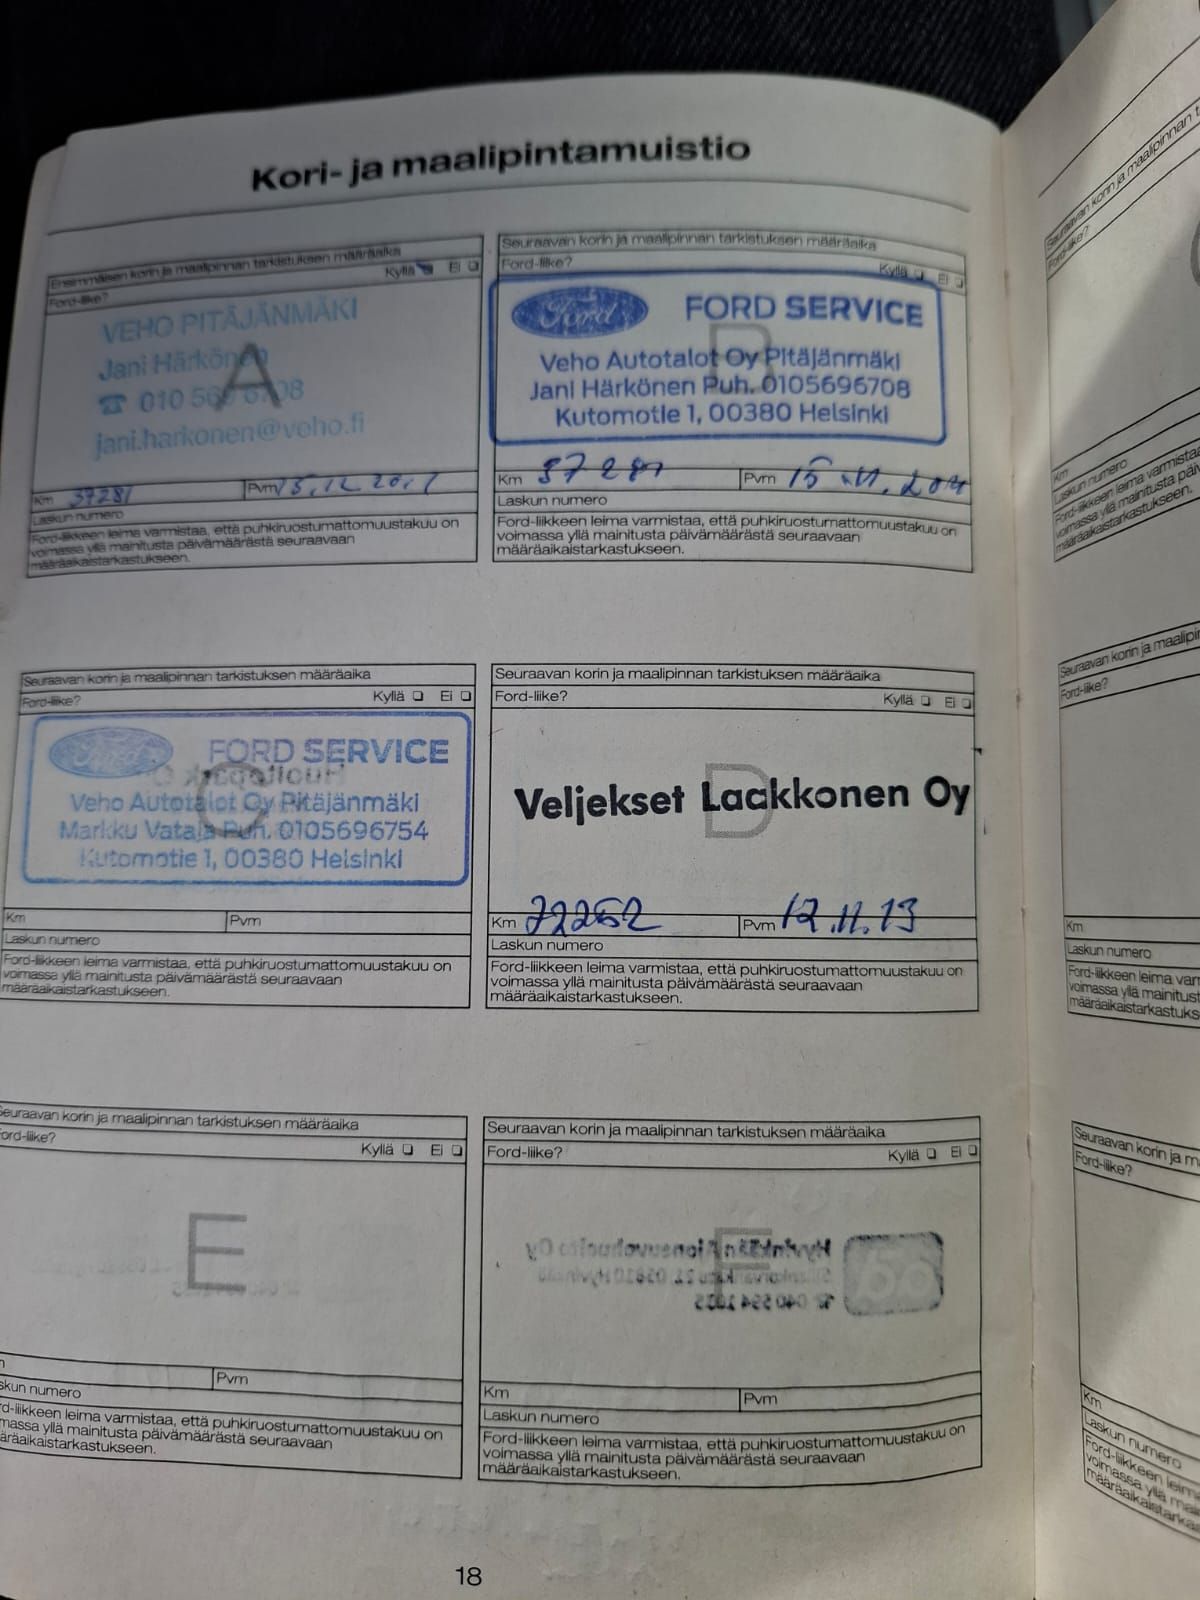 Kori- ja maalipintamuistio
Ensimmäisen korin ja maalipinnan tarkistuksen määräaika
Ford-liike?
Kyllä Ei
VEHO PITÄJÄNMÄKI
Jani Härkönen
A
010 569 6708
jani.harkonen@veho.fi
Km 37281
Pvm 15.12.2011
Laskun numero
Ford-liikkeen leima varmistaa, että puhkiruostumattomuustakuu on
voimassa yllä mainitusta päivämäärästä seuraavaan
määräaikaistarkastukseen.
Seuraavan korin ja maalipinnan tarkistuksen määräaika
Ford-liike?
Kyllä Ei
Ford FORD SERVICE
B
Veho Autotalot Oy Pitäjänmäki
Jani Härkönen Puh. 0105696708
Kutomotie 1, 00380 Helsinki
Km 37281
Pvm 15
Laskun numero
Ford-liikkeen leima varmistaa, että puhkiruostumattomuustakuu on
voimassa yllä mainitusta päivämäärästä seuraavaan
määräaikaistarkastukseen.
Seuraavan korin ja maalipinnan tarkistuksen määräaika
Ford-liike?
Kyllä Ei
Ford FORD SERVICE
C
Veho Autotalot Oy Pitäjänmäki
Markku Vataja Puh. 0105696754
Kutomotie 1, 00380 Helsinki
Km
Pvm
Laskun numero
Ford-liikkeen leima varmistaa, että puhkiruostumattomuustakuu on
voimassa yllä mainitusta päivämäärästä seuraavaan
määräaikaistarkastukseen.
Seuraavan korin ja maalipinnan tarkistuksen määräaika
Ford-liike?
Kyllä Ei
D
Veljekset Laakkonen Oy
Km 72252
Pvm 12.11.13
Laskun numero
Ford-liikkeen leima varmistaa, että puhkiruostumattomuustakuu on
voimassa yllä mainitusta päivämäärästä seuraavaan
määräaikaistarkastukseen.
Seuraavan korin ja maalipinnan tarkistuksen määräaika
ord-liike?
Kyllä Ei
E
Pvm
skun numero
rd-liikkeen leima varmistaa, että puhkiruostumattomuustakuu on
massa yllä mainitusta päivämäärästä seuraavaan
äräaikaistarkastukseen.
Seuraavan korin ja maalipinnan tarkistuksen määräaika
Ford-liike?
Kyllä Ei
F
Km
Pvm
Laskun numero
Ford-liikkeen leima varmistaa, että puhkiruostumattomuustakuu on
voimassa yllä mainitusta päivämäärästä seuraavaan
määräaikaistarkastukseen.
18
Seuraavan korin ja maalipinnan
Ford-liike?
Km
Laskun numero
Ford-liikkeen leima varmistaa
voimassa yllä mainitusta
määräaikaistarkastukseen.
Seuraavan korin ja maalipin
Ford-liike?
Km
Laskun numero
Ford-liikkeen leima var
voimassa yllä mainitust
määräaikaistarkastukse
Seuraavan korin ja m
Ford-liike?
Km
Laskun numero
Ford-liikkeen leim
voimassa yllä mai
määräaikaistarkas